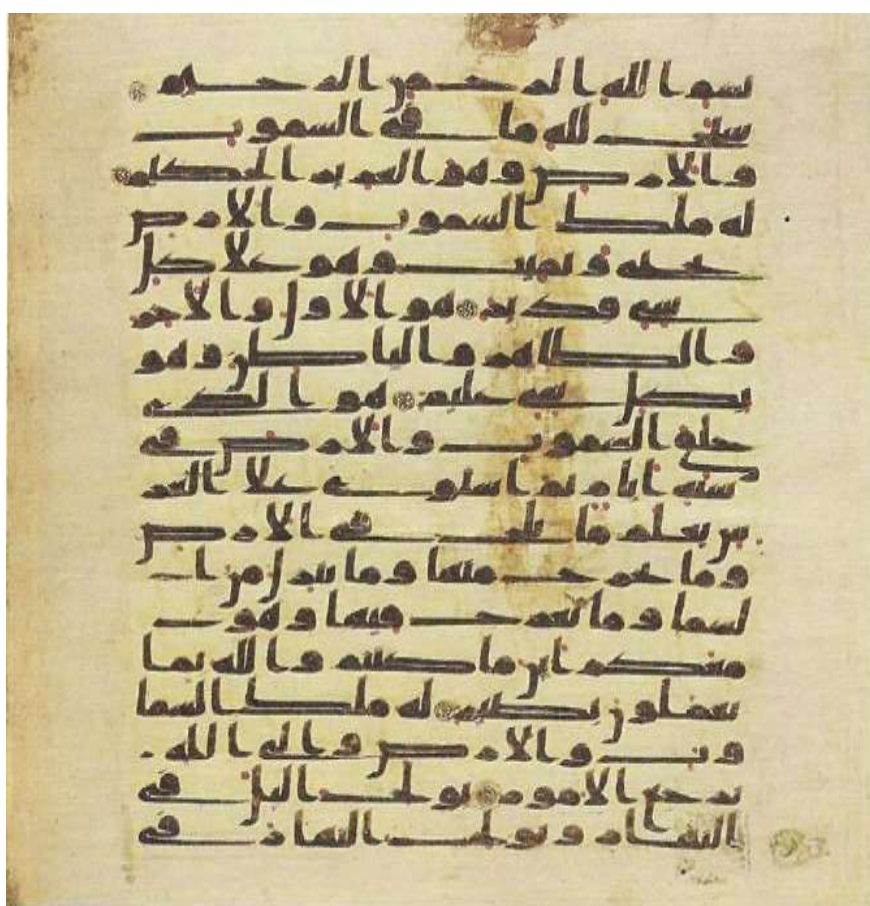 بسم الله الرحمن الرحيم
سبح لله ما في السموت
والارض وهو العزيز الحكيم
له ملك السموت والارض
يحي ويميت وهو علا كل
شي قدير هو الاول والاخر
والظاهر والباطن وهو
بكل شي عليم هو الذي
خلق السموت والارض في
ستة ايام ثم استوى علا العر
ش يعلم ما يلج في الارض
وما يخرج منها وما ينزل من ا
لسما وما يعرج فيها وهو
معكم اين ما كنتم والله بما
تعملون بصير له ملك السما
وت والارض والى الله
ترجع الامور يولج اليل في
النهار ويولج النهار في